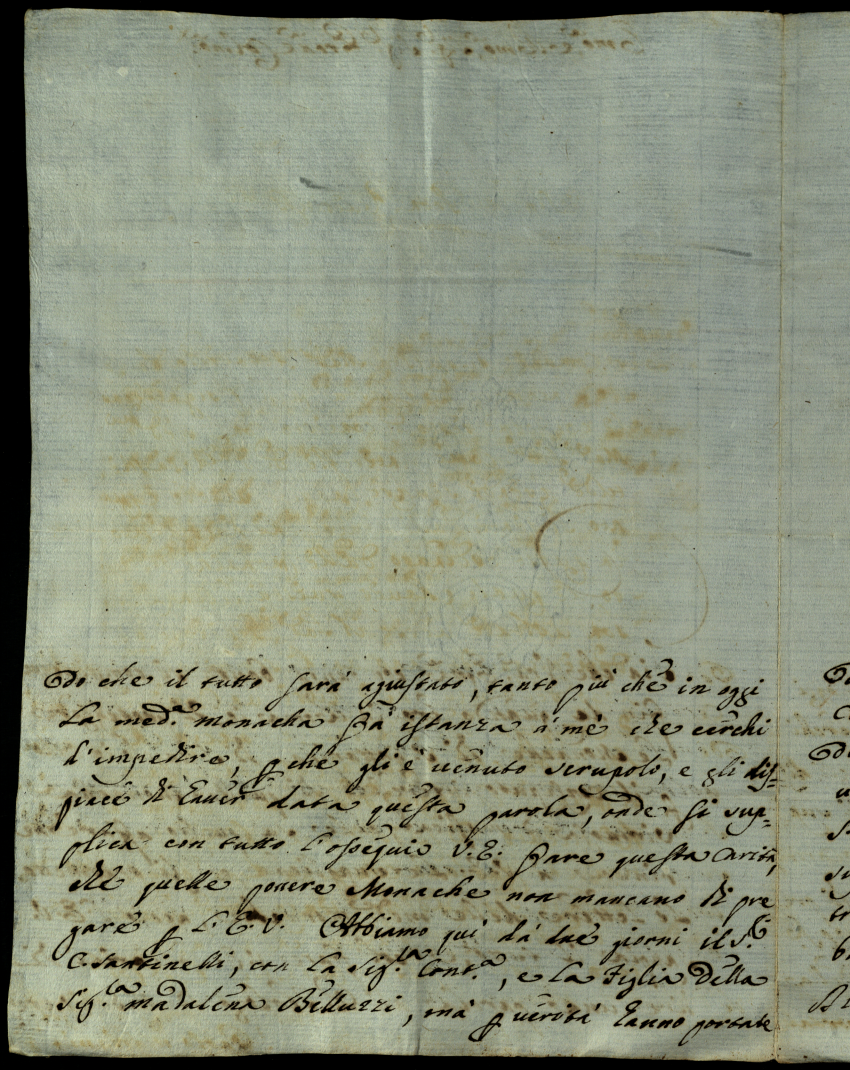 do che il tutto sarà agiustato, tanto più che in oggi
la med.ª monacha fà istanza à mè che cerchi
d'impedire, p che gli è uenuto scrupolo, e gli dis=
piace di hauer data questa parola, onde si sup=
plica con tutto l'ossequio V. E: fare questa carità,
che quelle pouere Monache non mancano di pre
gare p L' E. V. Abbiamo qui dà due giorni il S.r
C. Santinelli, con la Sig.ra Cont.a, e la Figlia della
Sig.ra Madalena Belluzzi, mà p uerità hanno portate